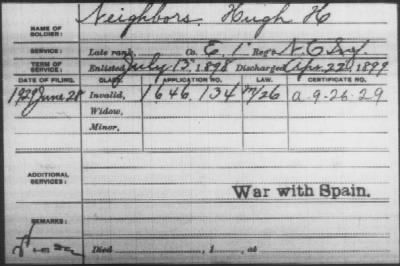 NAME OF SOLDIER: Neighbors, Hugh H
SERVICE: Late rank, Co. E, 1" Reg't N.C. Inf.
TERM OF SERVICE: Enlisted July 13, 1898 Discharged Apr. 22, 1899
DATE OF FILING. CLASS. APPLICATION NO. LAW. CERTIFICATE NO.
1929 June 28 Invalid, 1646,134 a-9-26-29
Widow,
Minor,
ADDITIONAL SERVICES:
War with Spain.
REMARKS:
Died , 1 , at